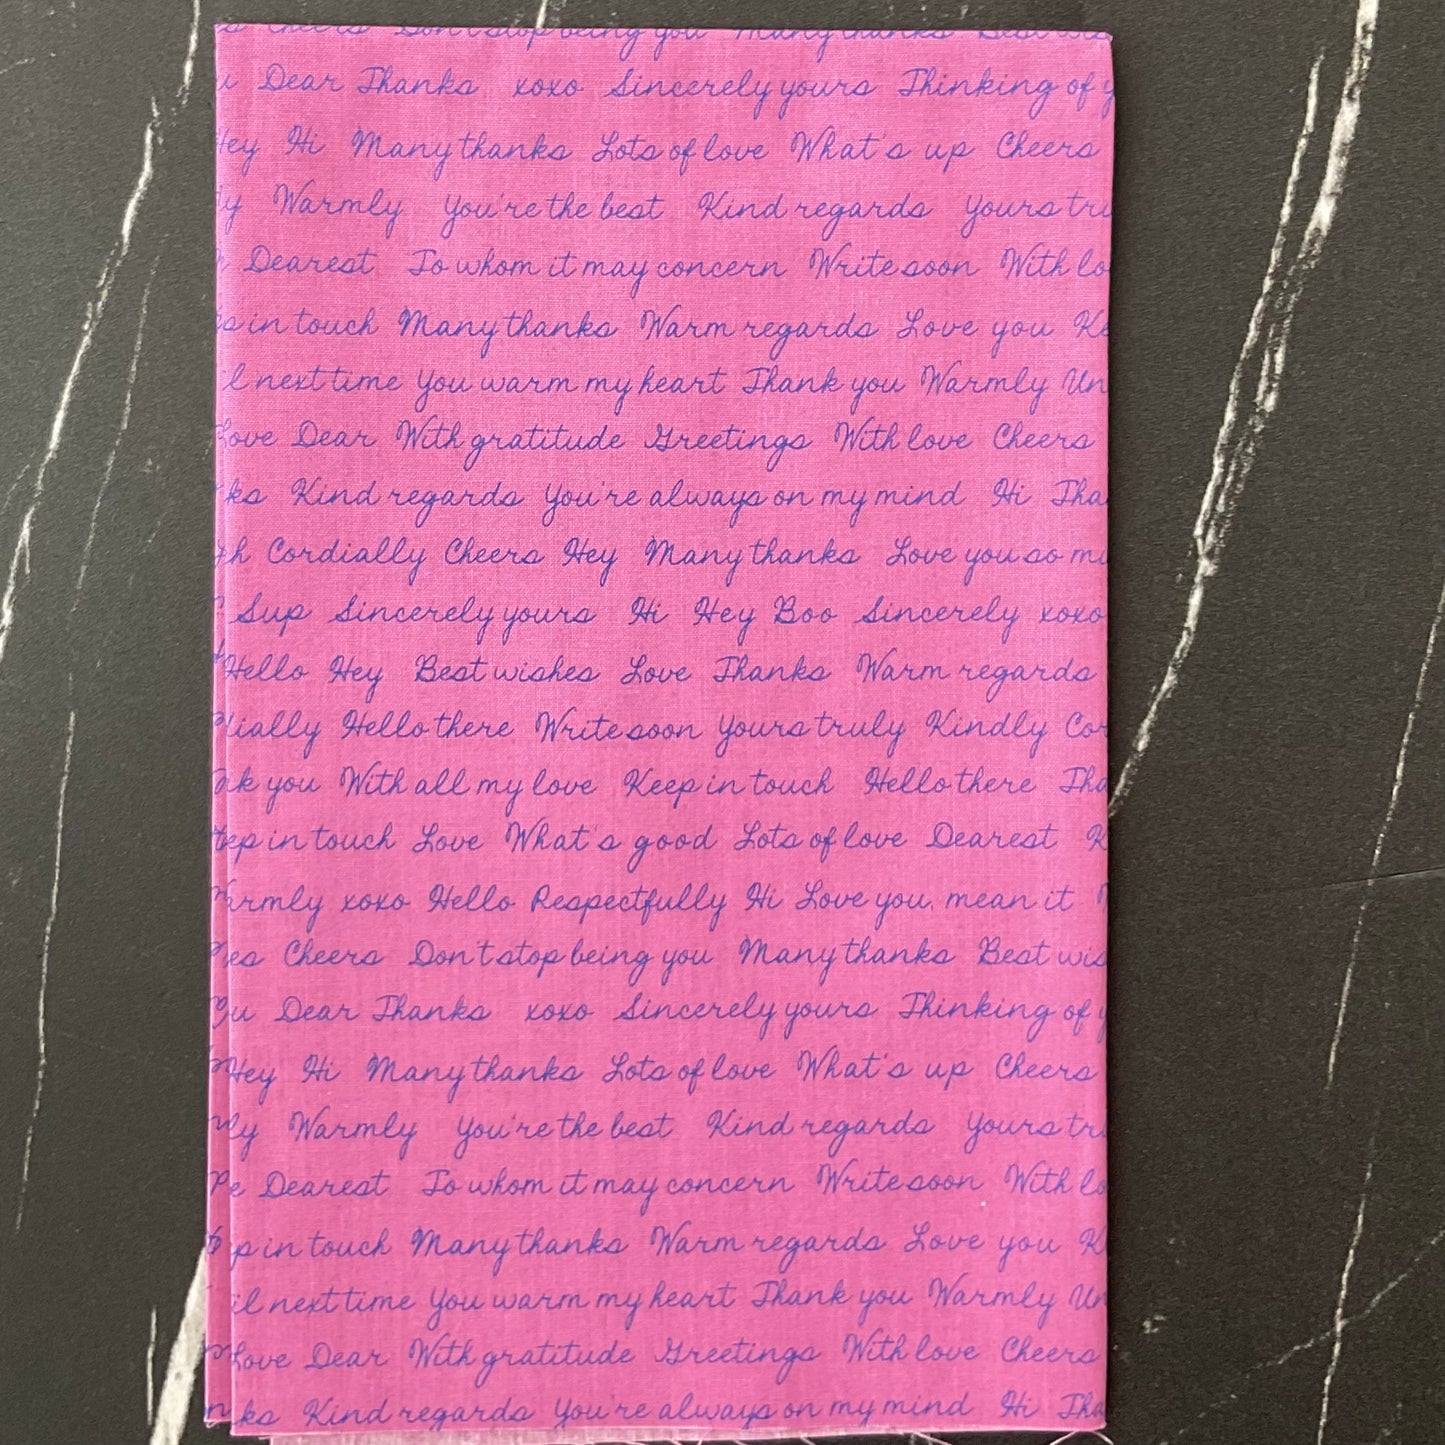 Don't stop being you Many thanks Best
Dear Thanks xoxo Sincerely yours Thinking of y
Hey Hi Many thanks Lots of love What's up Cheers
ly Warmly You're the best Kind regards Yours tru
Dearest To whom it may concern Write soon With lo
in touch Many thanks Warm regards Love you Ke
il next time You warm my heart Thank you Warmly Un
Love Dear With gratitude Greetings With love Cheers
ks Kind regards You're always on my mind Hi Tha
h Cordially Cheers Hey Many thanks Love you so mu
Sup Sincerely yours Hi Hey Boo Sincerely xoxo
Hello Hey Best wishes Love Thanks Warm regards
dially Hello there Write soon Yours truly Kindly Cor
nk you With all my love Keep in touch Hello there Tha
ep in touch Love What's good Lots of love Dearest K
armly xoxo Hello Respectfully Hi Love you, mean it
es Cheers Don't stop being you Many thanks Best wis
u Dear Thanks xoxo Sincerely yours Thinking of y
Hey Hi Many thanks Lots of love What's up Cheers
ly Warmly You're the best Kind regards Yours tr
e Dearest To whom it may concern Write soon With lo
p in touch Many thanks Warm regards Love you K
il next time You warm my heart Thank you Warmly Un
Love Dear With gratitude Greetings With love Cheers
ks Kind regards You're always on my mind Hi Tha